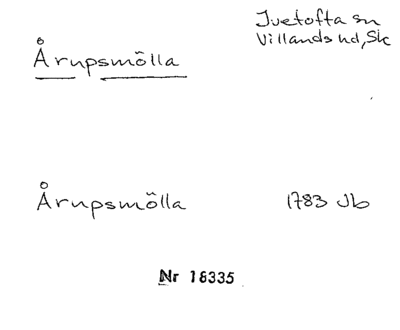 Ivetofta sn
Villands hd, Sk
Årupsmölla
Årupsmölla 1783 Jb
Nr 18335